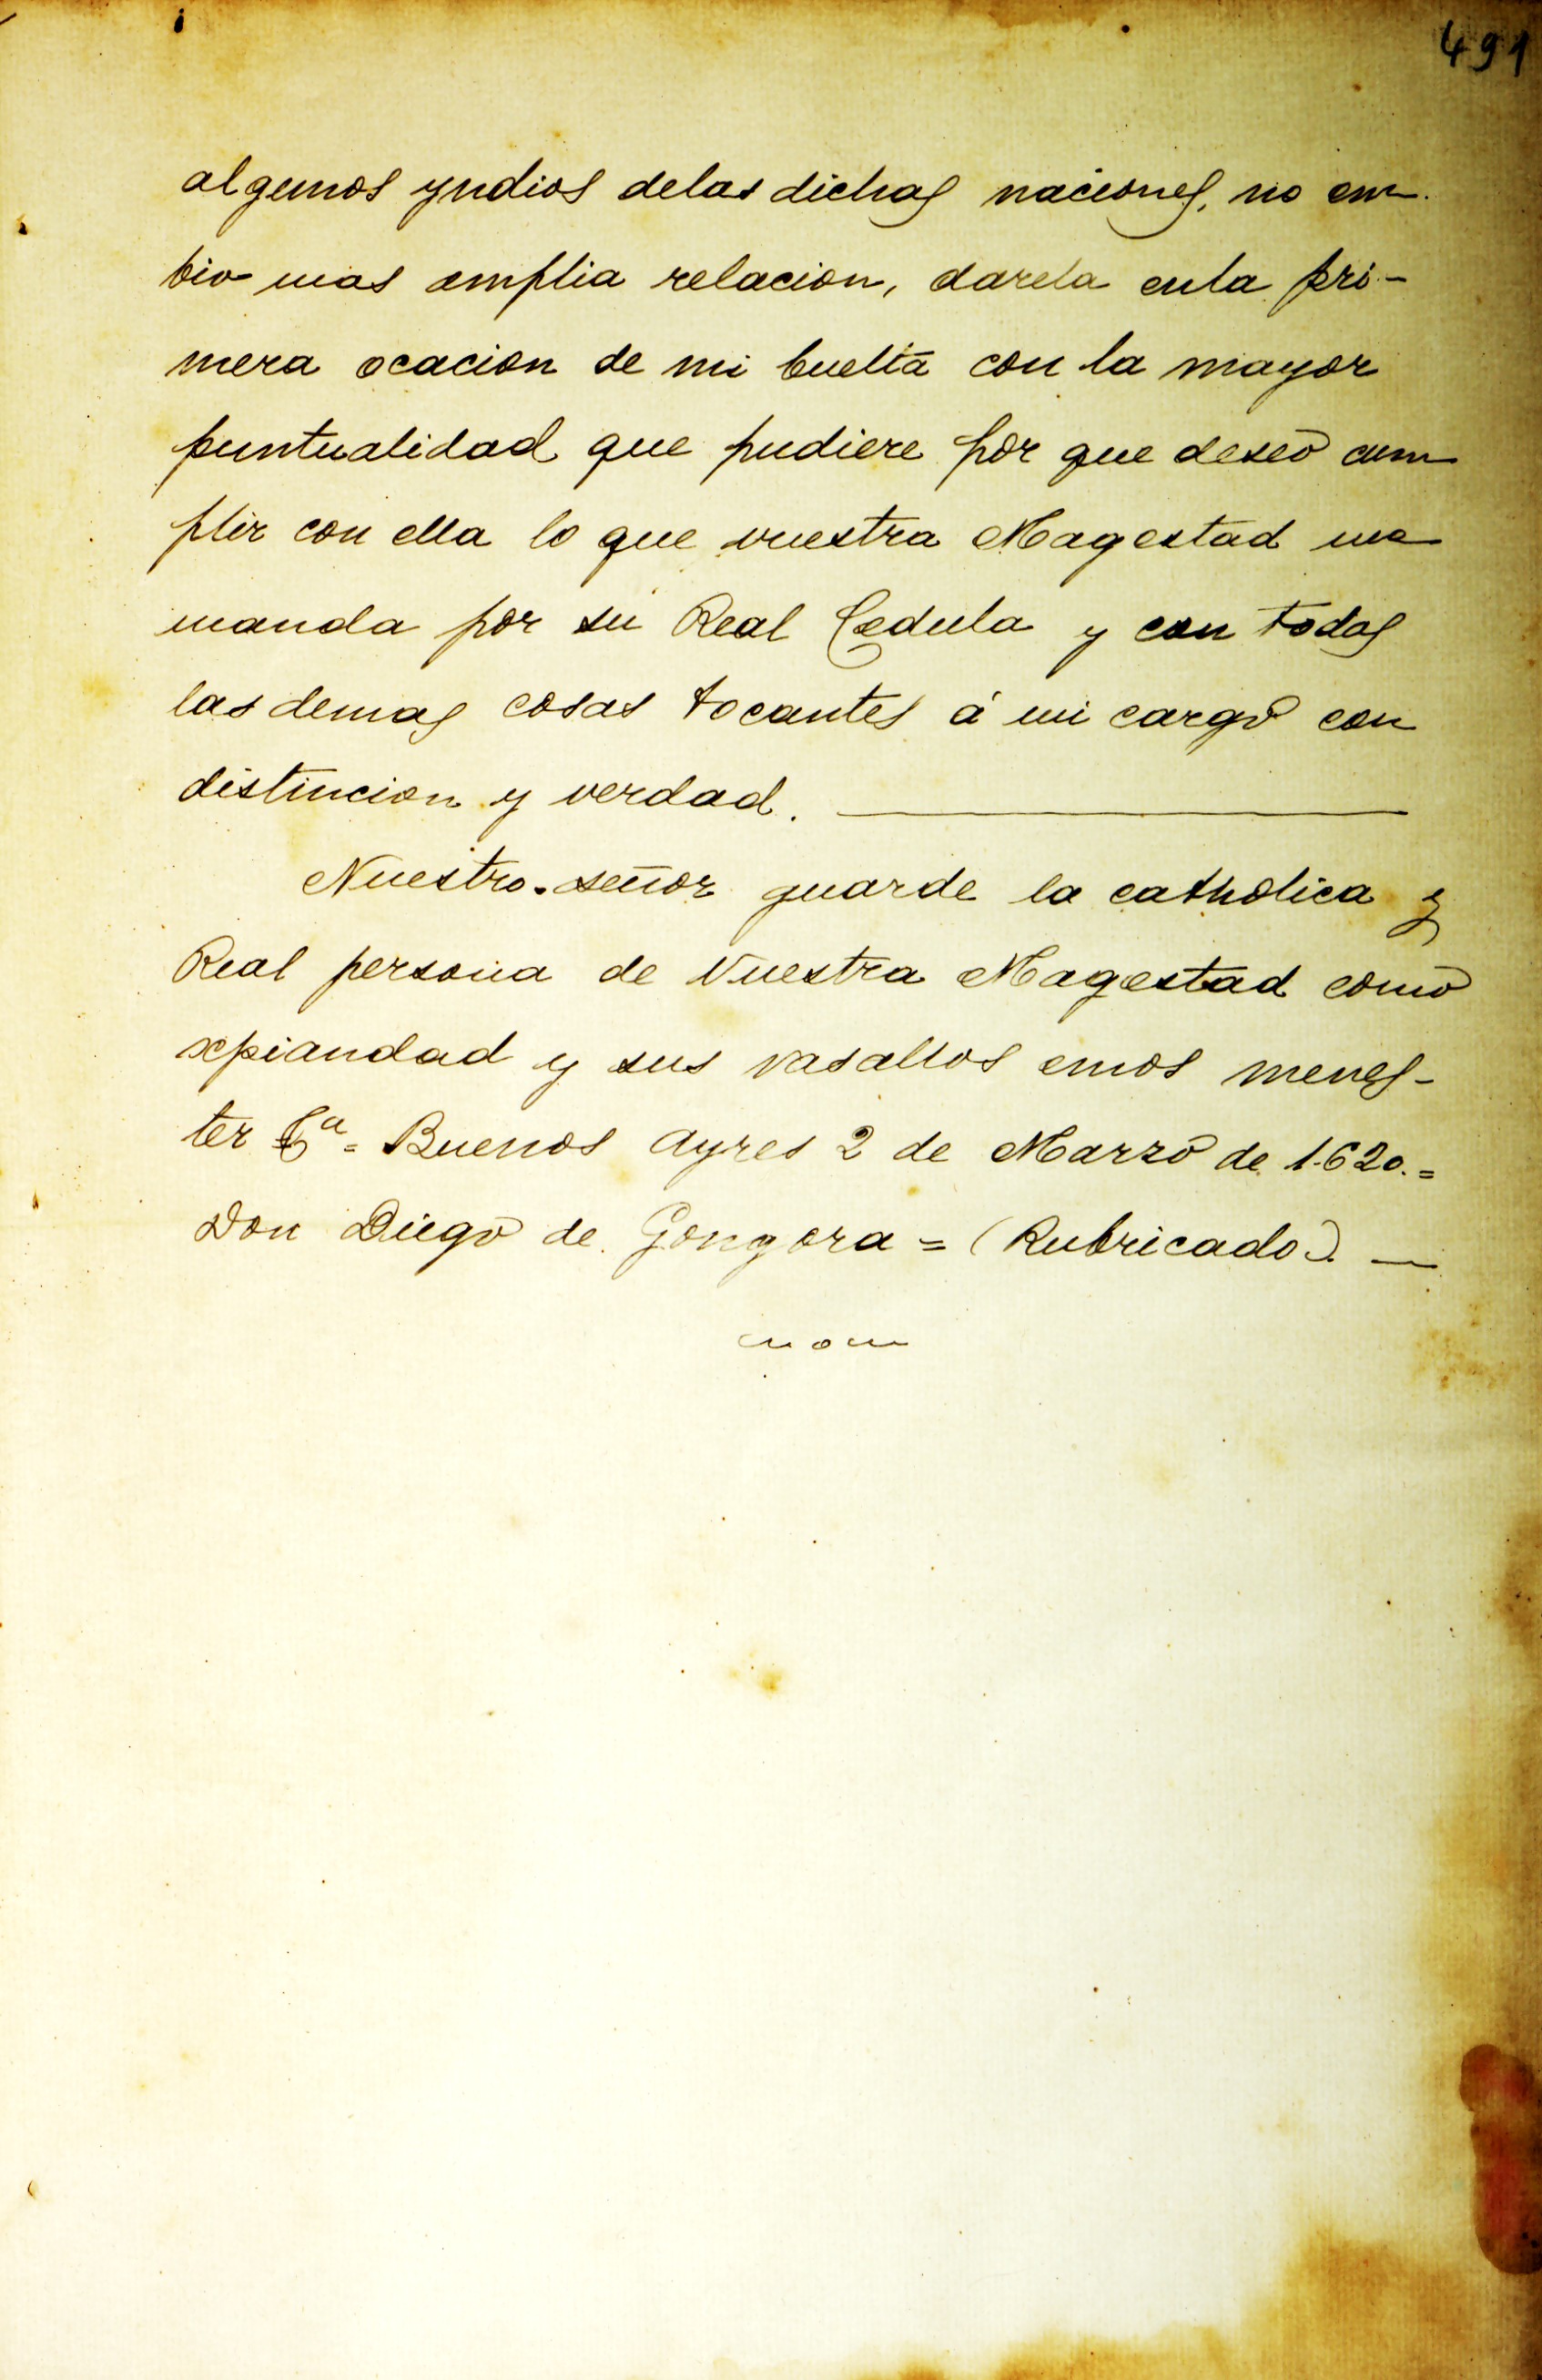 491
algunos yndios delas dichas naciones, no em-
bio mas amplia relacion, darela enla pri-
mera ocacion de mi buelta con la mayor
puntualidad que pudiere por que deseo cum
plir con ella lo que vuestra Magestad me
manda por su Real Cedula y con todas
las demas cosas tocantes á mi cargo con
distincion y verdad.
Nuestro señor guarde la catholica y
Real persona de Vuestra Magestad como
xpiandad y sus vasallos emos menes-
ter Ca = Buenos Ayres 2 de Marzo de 1620.=
Don Diego de Gongora = (Rubricado). —